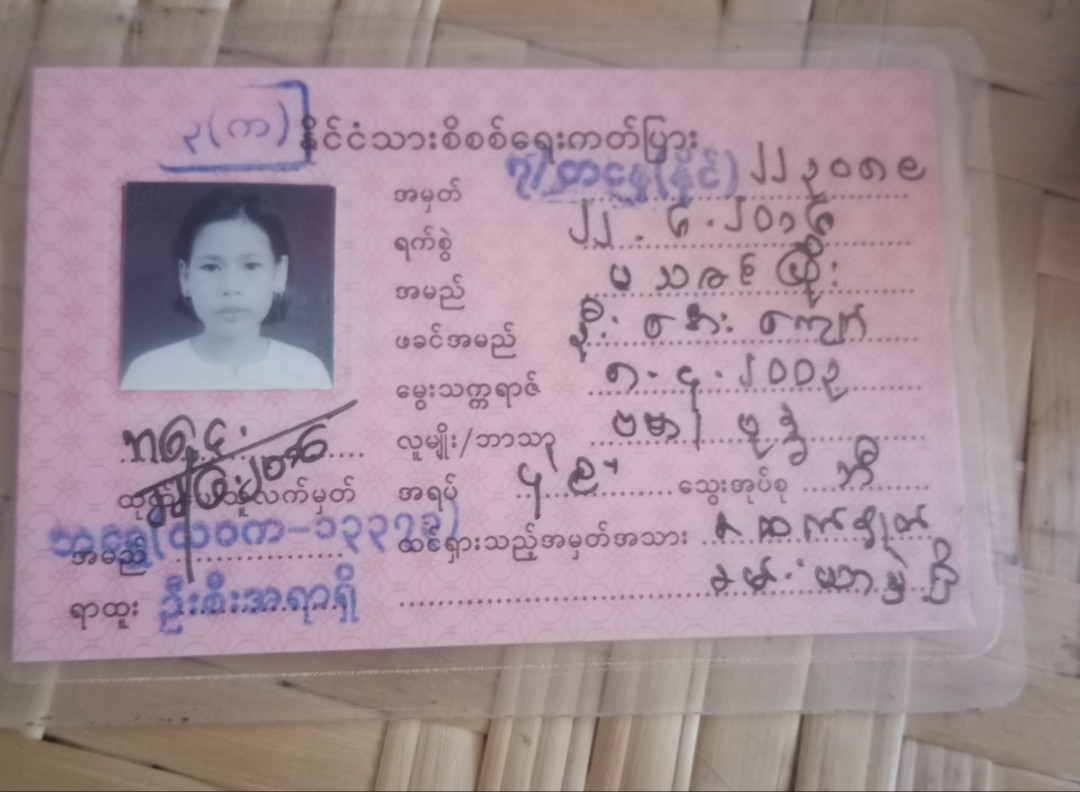 ၃(က)
နိုင်ငံသားစိစစ်ရေးကတ်ပြား
အမှတ် ၇/တငန(နိုင်) ၂၂၃၀၈၉
ရက်စွဲ ၂၂.၆.၂၀၁၆
အမည် မ သဇင်ဖြိုး
ဖခင်အမည် ဦးစောကျော်
မွေးသက္ကရာဇ် ၈.၄.၂၀၀၃
လူမျိုး/ဘာသာ ဗမာ၊ ဗုဒ္ဓ
အရပ် ၄' ၉" သွေးအုပ်စု ဘီ
ထင်ရှားသည့်အမှတ်အသား
ထုတ်ပေးသူလက်မှတ်
အမည်
ရာထူး ဦးစီးအရာရှိ